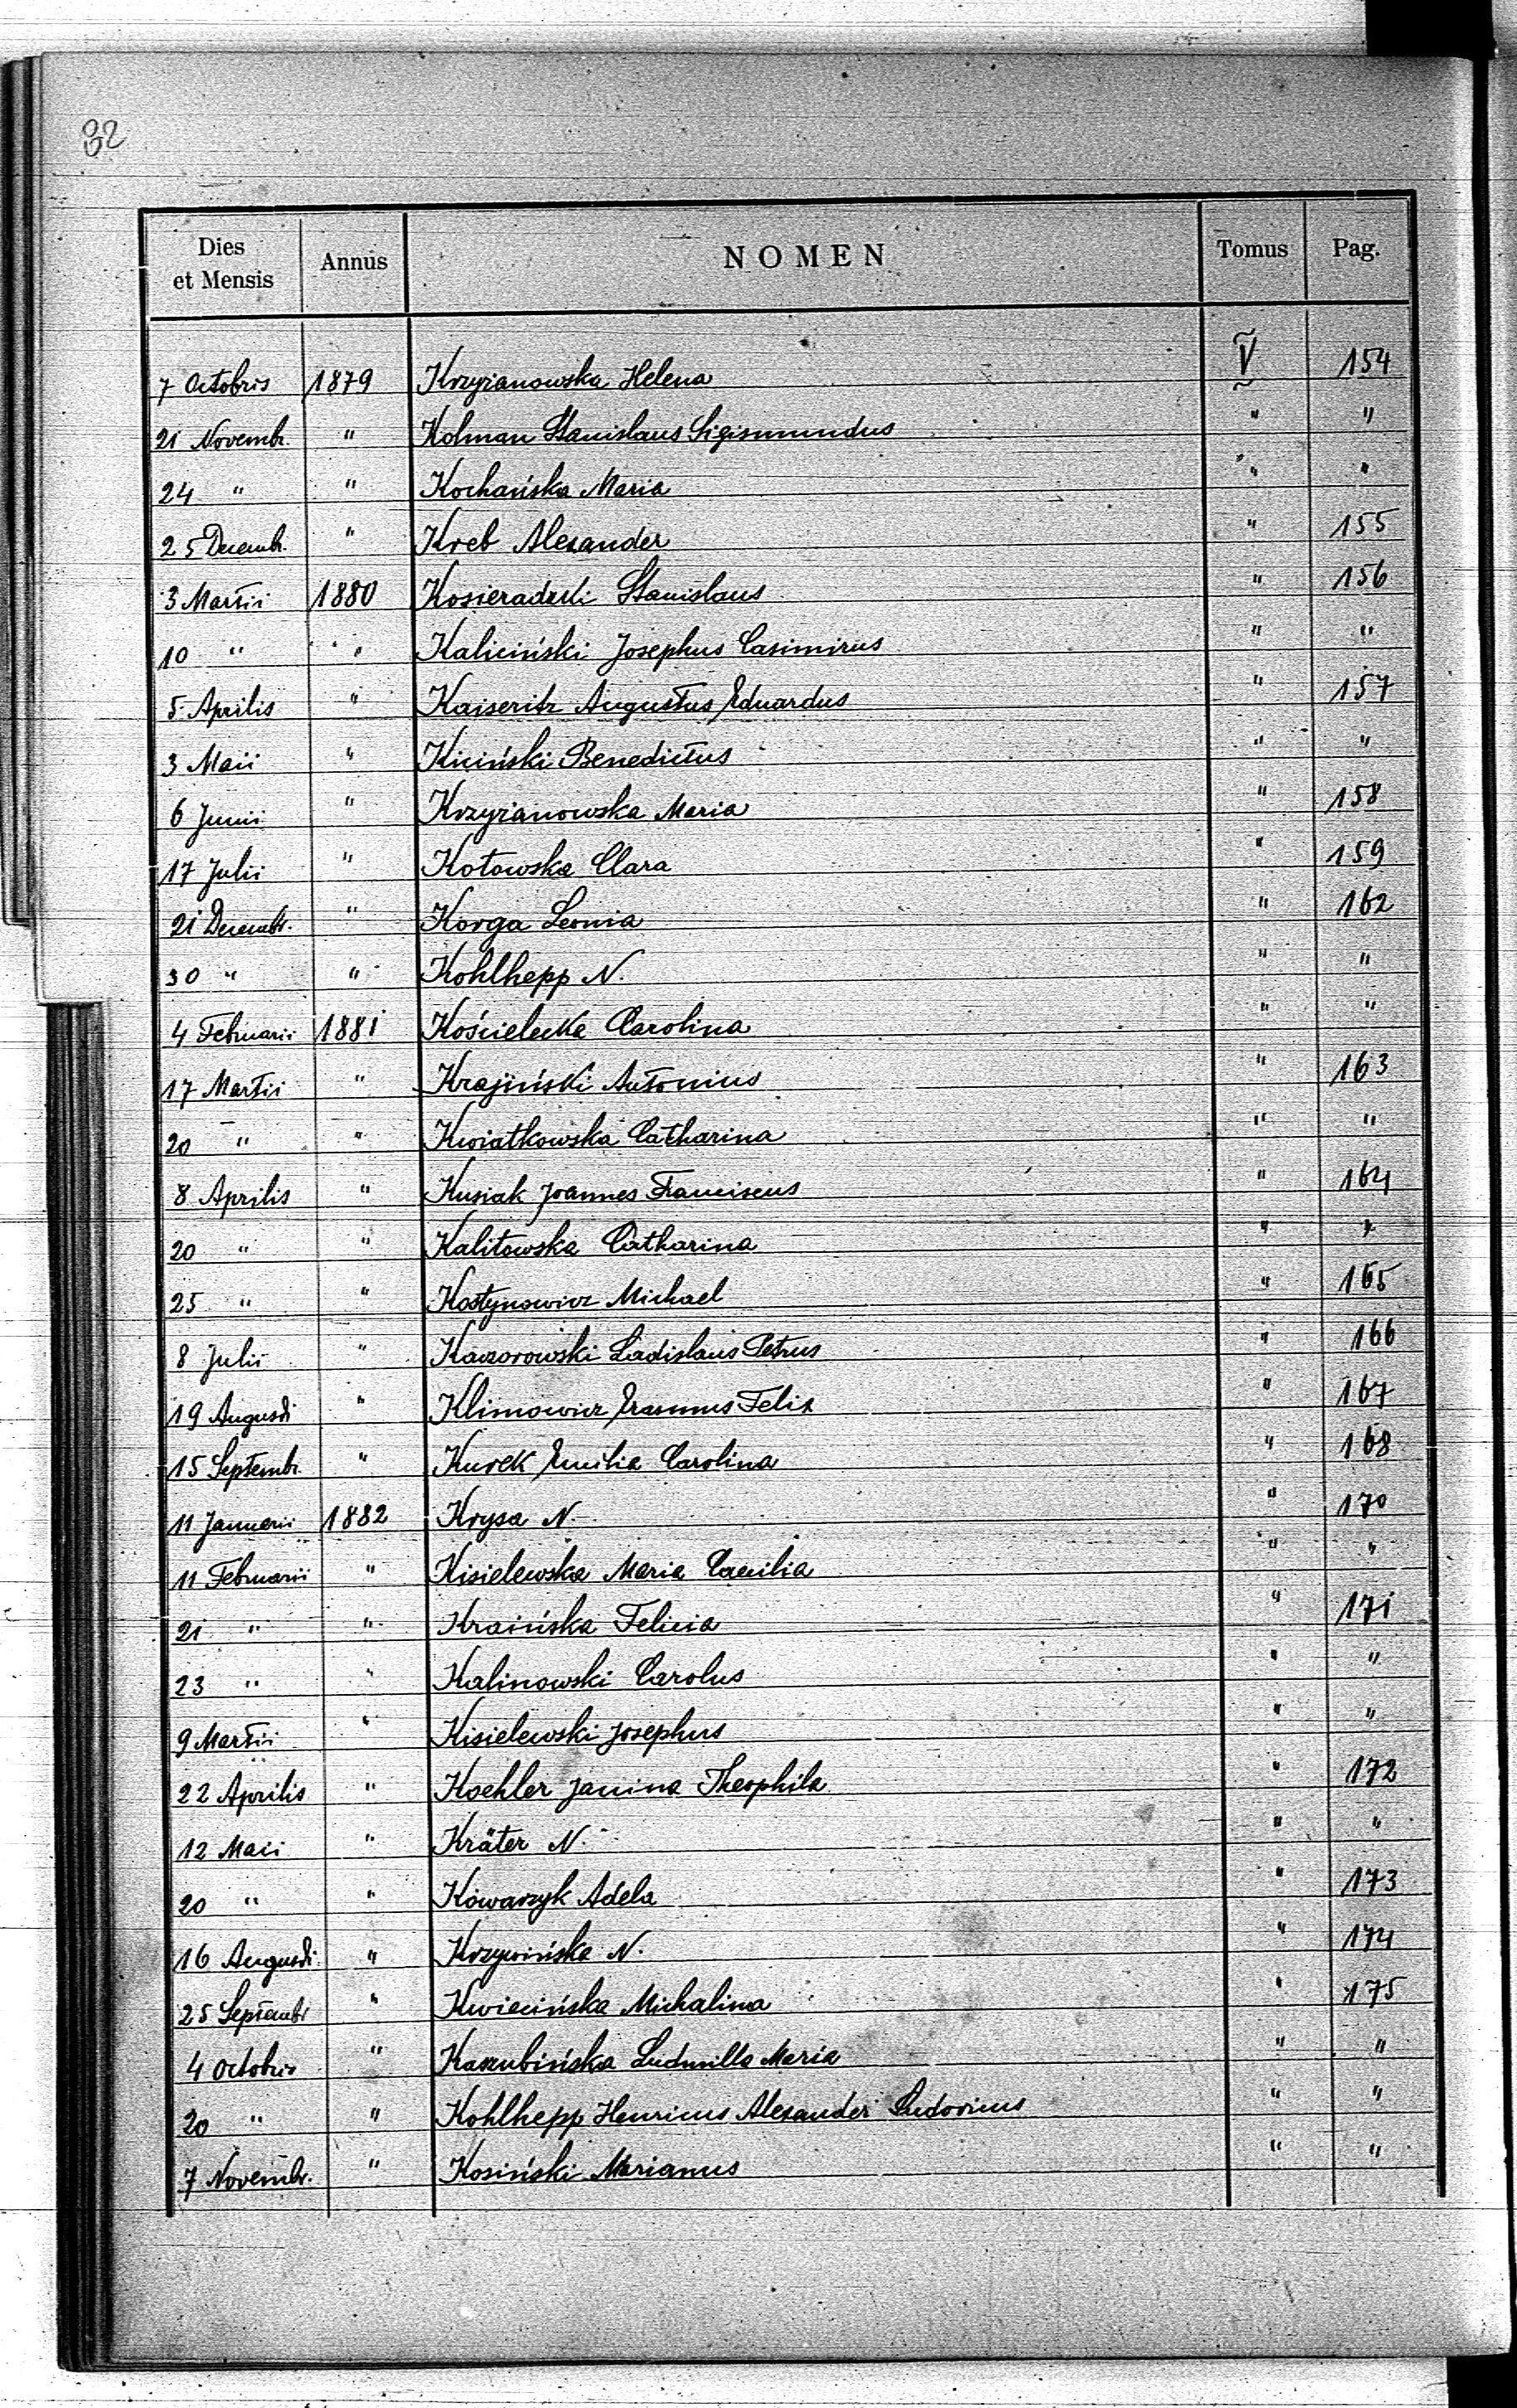 32
Dies et Mensis Annus NOMEN Tomus Pag.
7 Octobris 1879 Krzyżanowska Helena V 154
21 Novembr. " Kolman Stanislaus Sigismundus " "
24 " " Kochańska Maria " "
25 Decemb. " Kreb Alexander " 155
3 Martii 1880 Kosieradzki Stanislaus " 156
10 " " Kaliciński Josephus Casimirus " "
5 Aprilis " Kaiseritz Augustus Eduardus " 157
3 Maii " Kiciński Benedictus " "
6 Junii " Krzyżanowska Maria " 158
17 Julii " Kotowska Clara " 159
21 Decembr. " Korga Leonia " 162
30 " " Kohlhepp N. " "
4 Februarii 1881 Kościelecka Carolina " "
17 Martii " Krajiński Antonius " 163
20 " " Kwiatkowska Catharina " "
8 Aprilis " Kusiak Joannes Franciscus " 164
20 " " Kalitowska Catharina " "
25 " " Kostynowicz Michael " 165
8 Julii " Kaczorowski Ladislaus Petrus " 166
19 Augusti " Klimowicz Erasmus Felix " 167
15 Septembr. " Kurek Emilia Carolina " 168
11 Januarii 1882 Krysa N. " 170
11 Februarii " Kisielewska Maria Caecilia " "
21 " " Kraińska Felicia " 171
23 " " Kalinowski Carolus " "
9 Martii " Kisielewski Josephus " "
22 Aprilis " Koehler Janina Theophila " 172
12 Maii " Kräter N. " "
20 " " Kowarzyk Adela " 173
16 Augusti " Krzywińska N. " 174
25 Septembr " Kwiecińska Michalina " 175
4 Octobris " Kaszubińska Ludmilla Maria " "
20 " " Kohlhepp Henricus Alexander Ludovicus " "
7 Novembr. " Kosiński Marianus " "